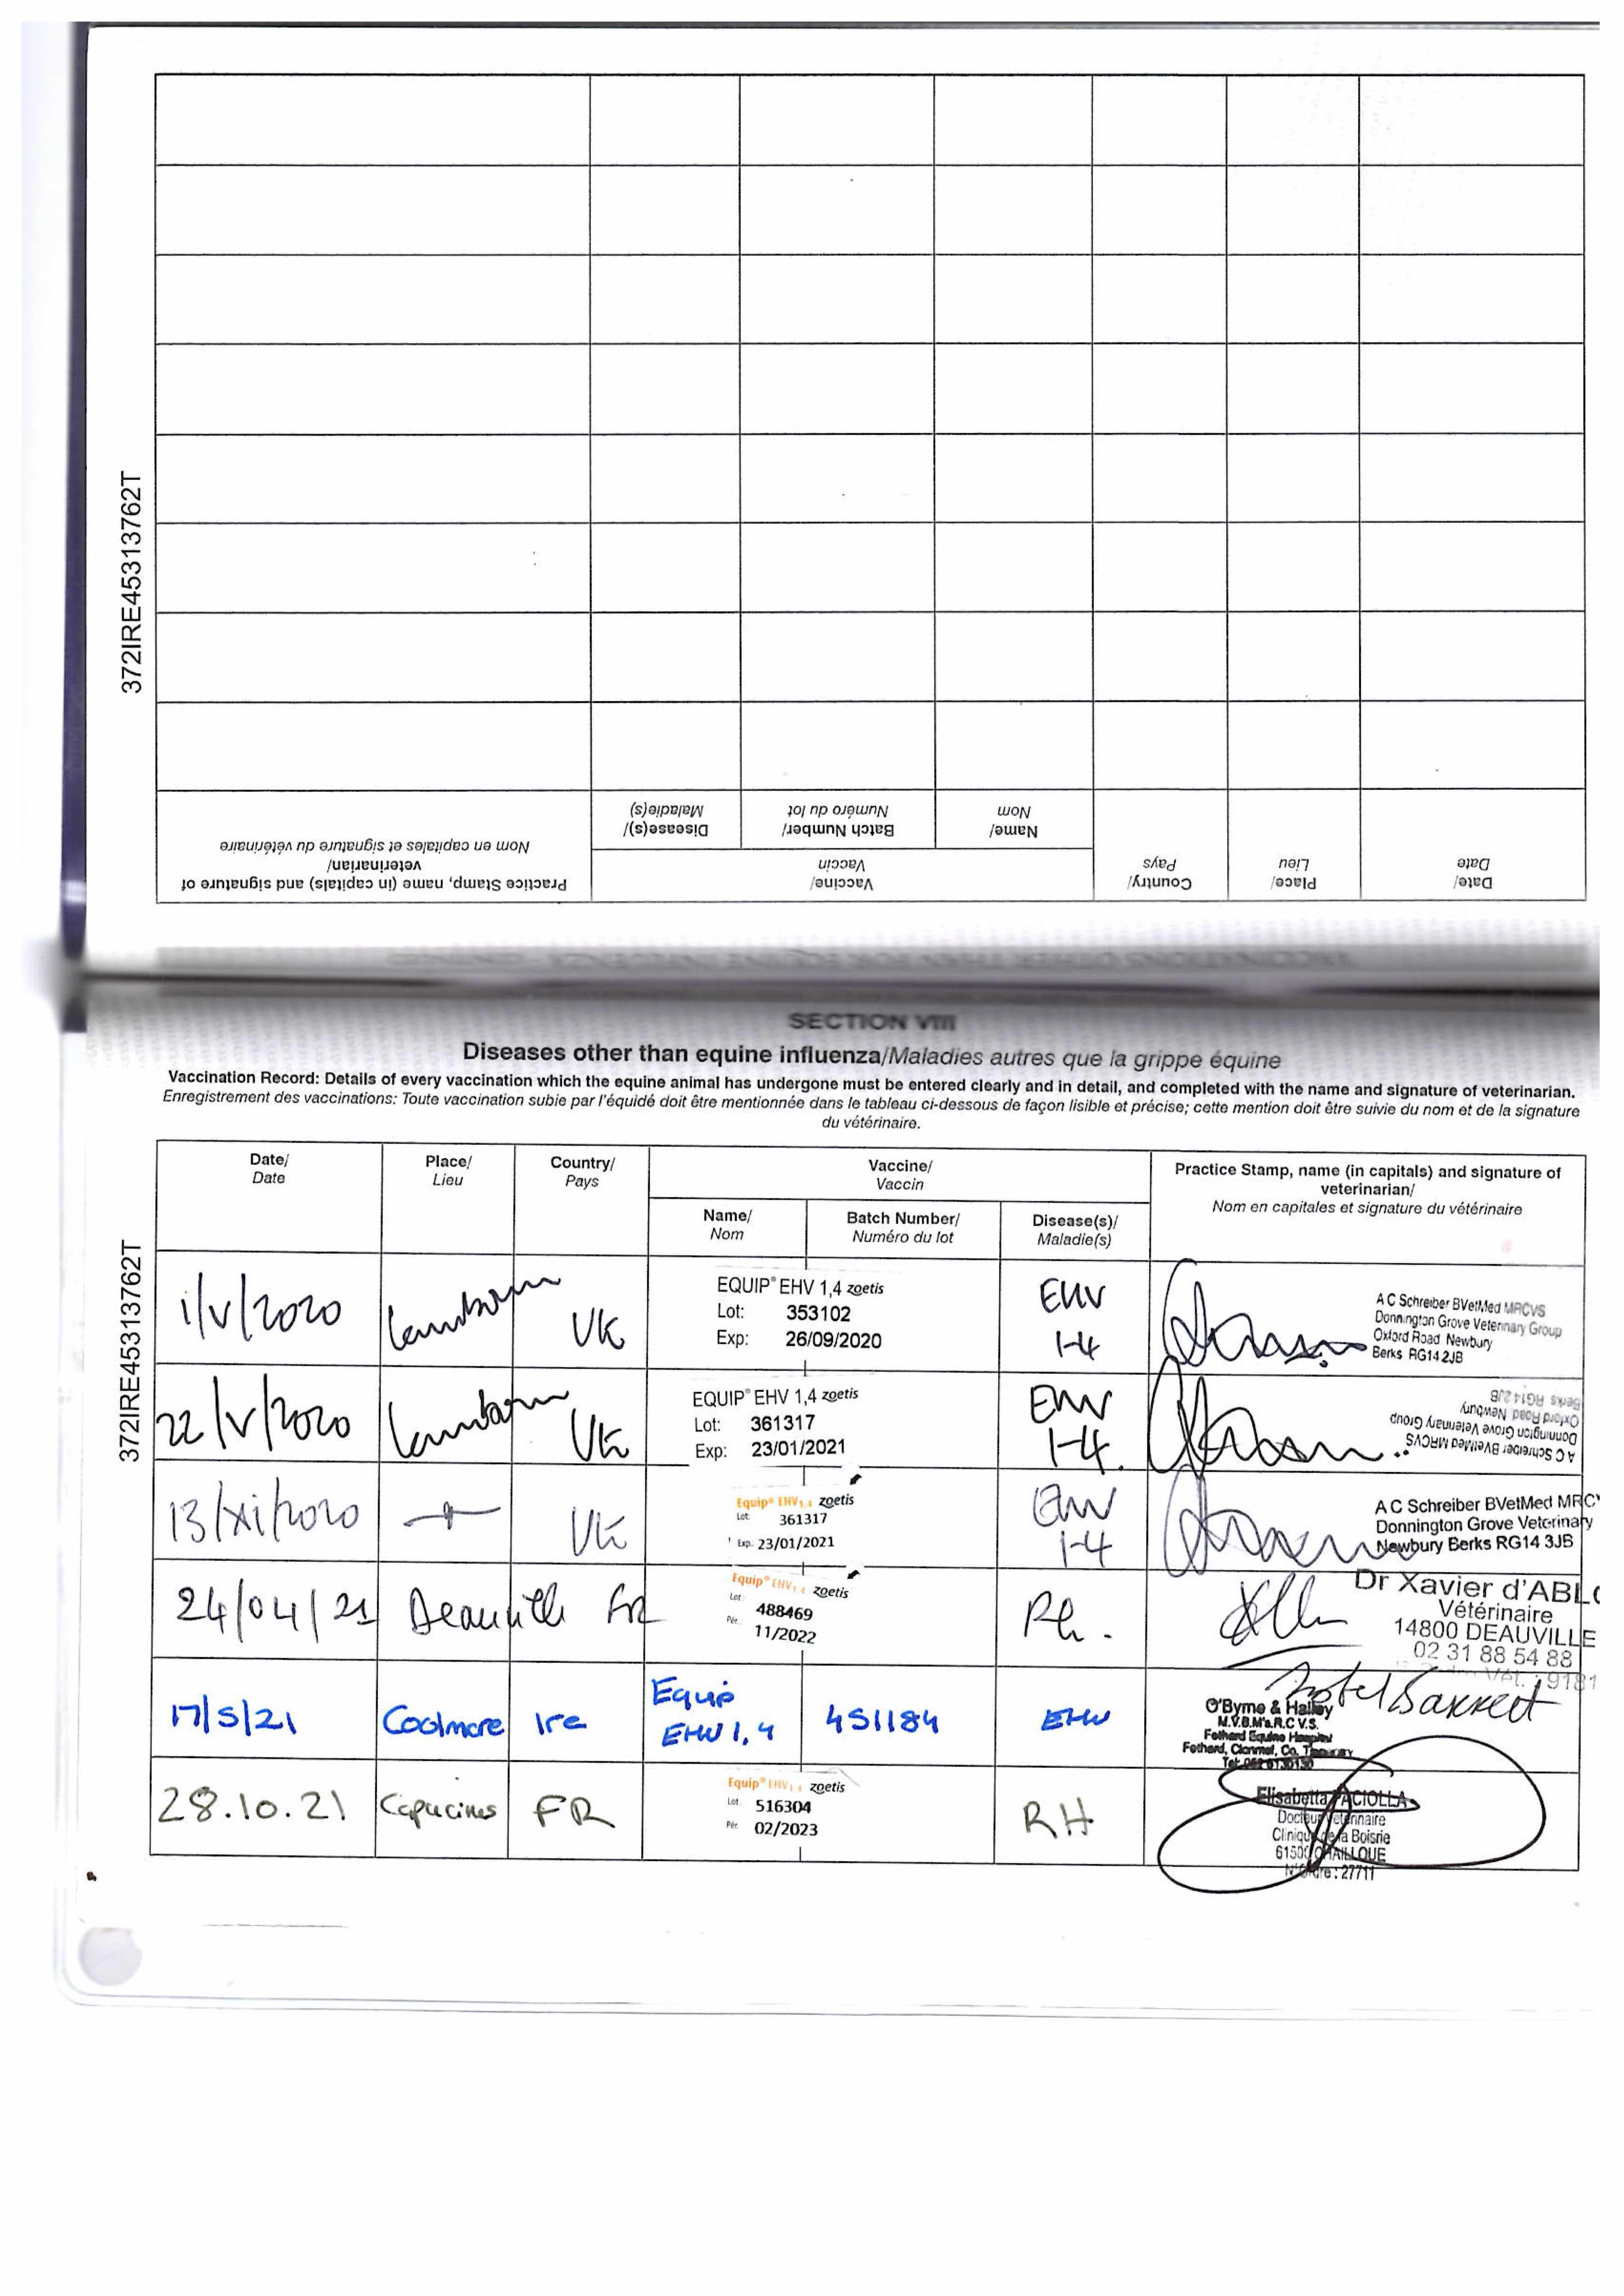 372IRE45313762T
Practice Stamp, name (in capitals) and signature of
veterinarian/
Nom en capitales et signature du vétérinaire
Vaccine/
Vaccin
Disease(s)/
Maladie(s)
Batch Number/
Numéro du lot
Name/
Nom
Country/
Pays
Place/
Lieu
Date/
Date
SECTION VIII
Diseases other than equine influenza/Maladies autres que la grippe équine
Vaccination Record: Details of every vaccination which the equine animal has undergone must be entered clearly and in detail, and completed with the name and signature of veterinarian.
Enregistrement des vaccinations: Toute vaccination subie par l'équidé doit être mentionnée dans le tableau ci-dessous de façon lisible et précise; cette mention doit être suivie du nom et de la signature
du vétérinaire.
372IRE45313762T
Date/
Date
Place/
Lieu
Country/
Pays
Vaccine/
Vaccin
Name/
Nom
Batch Number/
Numéro du lot
Disease(s)/
Maladie(s)
Practice Stamp, name (in capitals) and signature of
veterinarian/
Nom en capitales et signature du vétérinaire
1/V/2020
Lambourn
UK
EQUIP® EHV 1,4 zoetis
Lot: 353102
Exp: 26/09/2020
EHV
1-4
A C Schreiber BVetMed MRCVS
Donnington Grove Veterinary Group
Oxford Road Newbury
Berks RG14 2JB
22/V/2020
Lambourn
UK
EQUIP® EHV 1,4 zoetis
Lot: 361317
Exp: 23/01/2021
EHV
1-4.
A C Schreiber BVetMed MRCVS
Donnington Grove Veterinary Group
Oxford Road, Newbury
Berks RG14 2JB
13/xi/2020
UK
Equip® EHV1,4 zoetis
Lot: 361317
Exp. 23/01/2021
EHV
1-4
A C Schreiber BVetMed MRC
Donnington Grove Veterinary
Newbury Berks RG14 3JB
24/04/21
Deauville
FR
Equip® EHV1,4 zoetis
Lot: 488469
Pér. 11/2022
Rh.
Dr Xavier d'ABL
Vétérinaire
14800 DEAUVILLE
02 31 88 54 88
Vét. : 9181
17/5/21
Coolmore
Ire
Equip
EHV 1,4
451184
EHV
O'Byrne & Halley
M.V.B.M's.R.C.V.S.
Fethard Equine Hospital
Fethard, Clonmel, Co. Tipperary
28.10.21
Capucines
FR
Equip® EHV1,4 zoetis
Lot: 516304
Pér. 02/2023
RH
Elisabetta PACIOLLA
Docteur Vétérinaire
Clinique de la Boisrie
61500 CHAILLOUE
N° Ordre : 27711